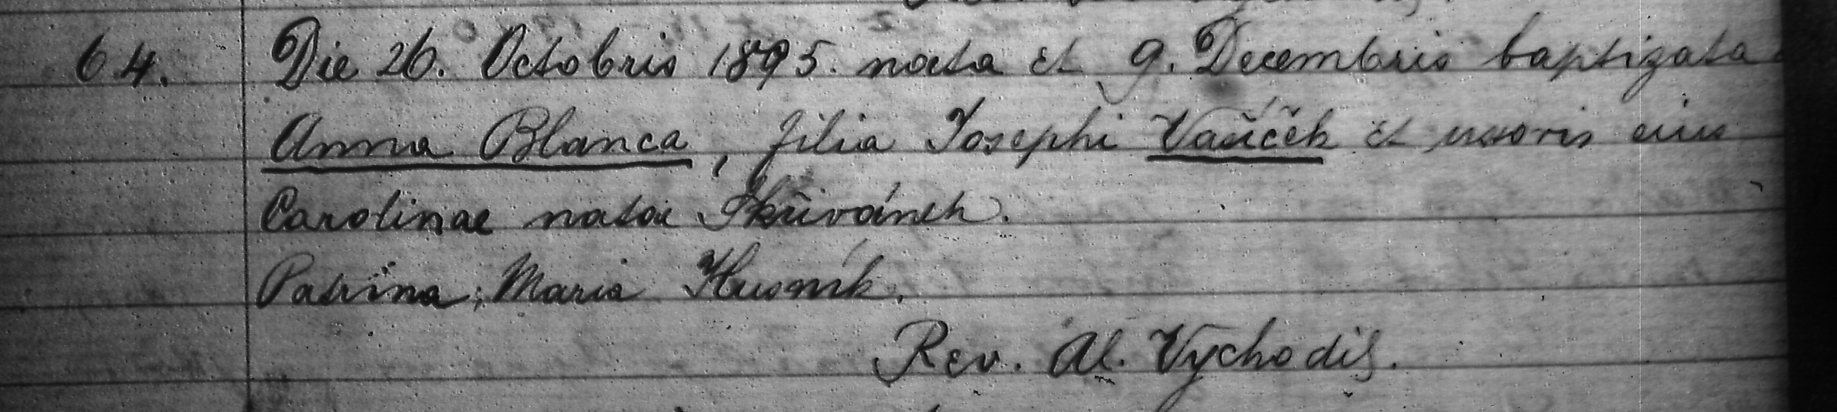 64. Die 26. Octobris 1895. nata et 9. Decembris baptizata
Anna Blanca, filia Josephi Vašíček et uxoris eius
Carolinae natae Skřivánek.
Patrina: Maria
Rev. Al. Vychodil.